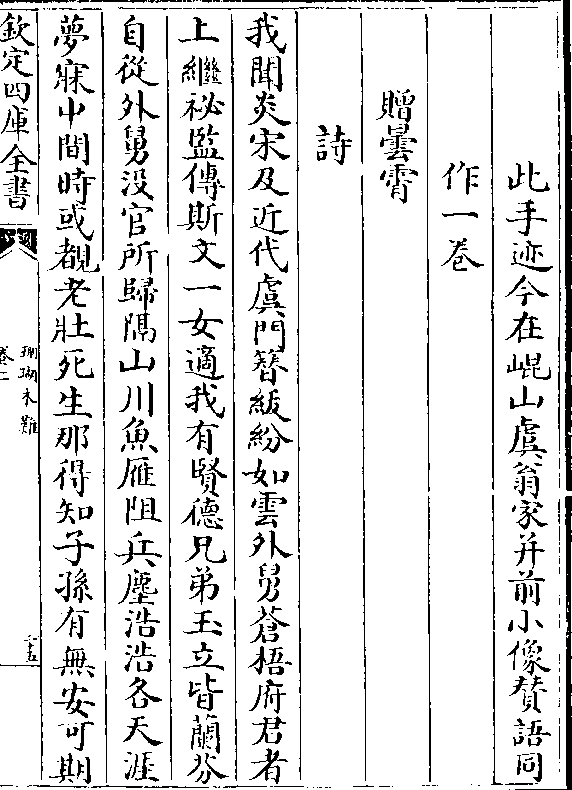 此手迹今在崐山虞翁家并前小像賛語同
作一卷
贈曇霄
詩
我聞炎宋及近代虞門簪紱紛如雲外舅蒼梧府君者
上繼祕監傳斯文一女適我有賢德兄弟玉立皆蘭芬
自從外舅没官所歸隔山川魚雁阻兵塵浩浩各天涯
夢寐中間時或覩老壯死生那得知子孫有無安可期
欽定四庫全書
珊瑚木難
卷二
二十五